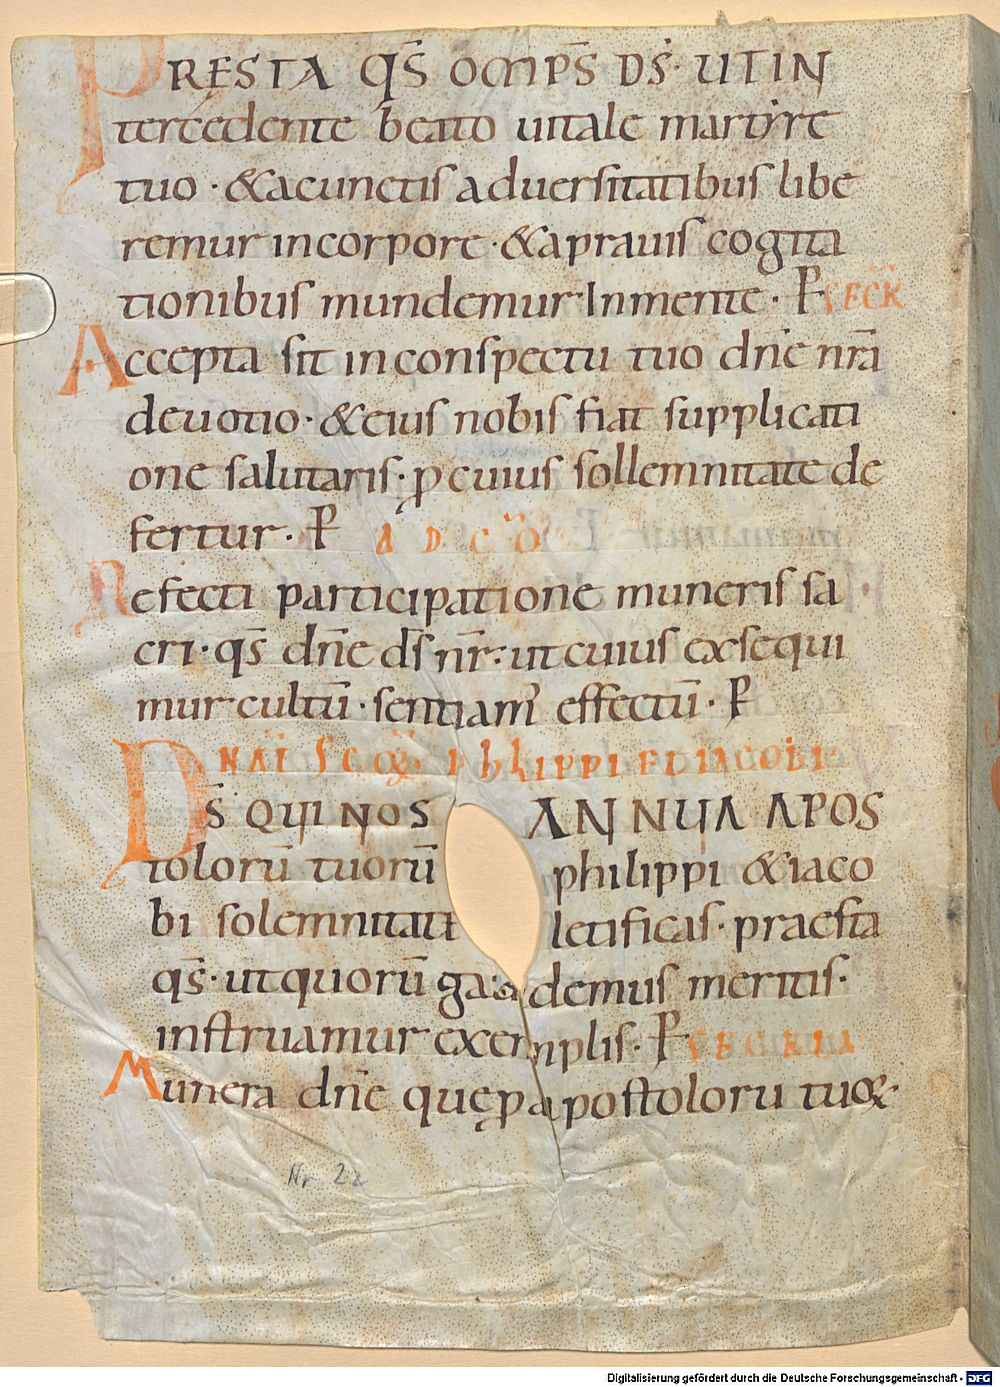 PRESTA Q̄S OMP̄S D̄S· UT IN
tercedente beato uitale martyre
tuo · & a cunctis aduersitatibus libe
remur in corpore · & a prauis cogita
tionibus mundemur In mente · P̄ SECR̄
Accepta sit in conspectu tuo dn̄e nr̄a
deuotio · & eius nobis fiat supplicati
one salutaris · ꝑ cuius sollemnitate de
fertur · P̄ AD CŌ
Refecti participatione muneris sa
cri · q̄s dn̄e d̄s nr̄ · ut cuius exsequi
mur cultū · sentiam' effectū · P̄
NAT̄ SCOꝜ PhILIPPI ET IACOBI
D̄S QUI NOS ANNUA APOS
tolorū tuorū philippi & iaco
bi solemnitate letificas · praesta
q̄s · ut quorū gaudemus meritis ·
instruamur exemplis · P̄ SECRETA
Munera dn̄e quę ꝑ apostoloru tuoꝝ ·
Nr 22
Digitalisierung gefördert durch die Deutsche Forschungsgemeinschaft - DFG